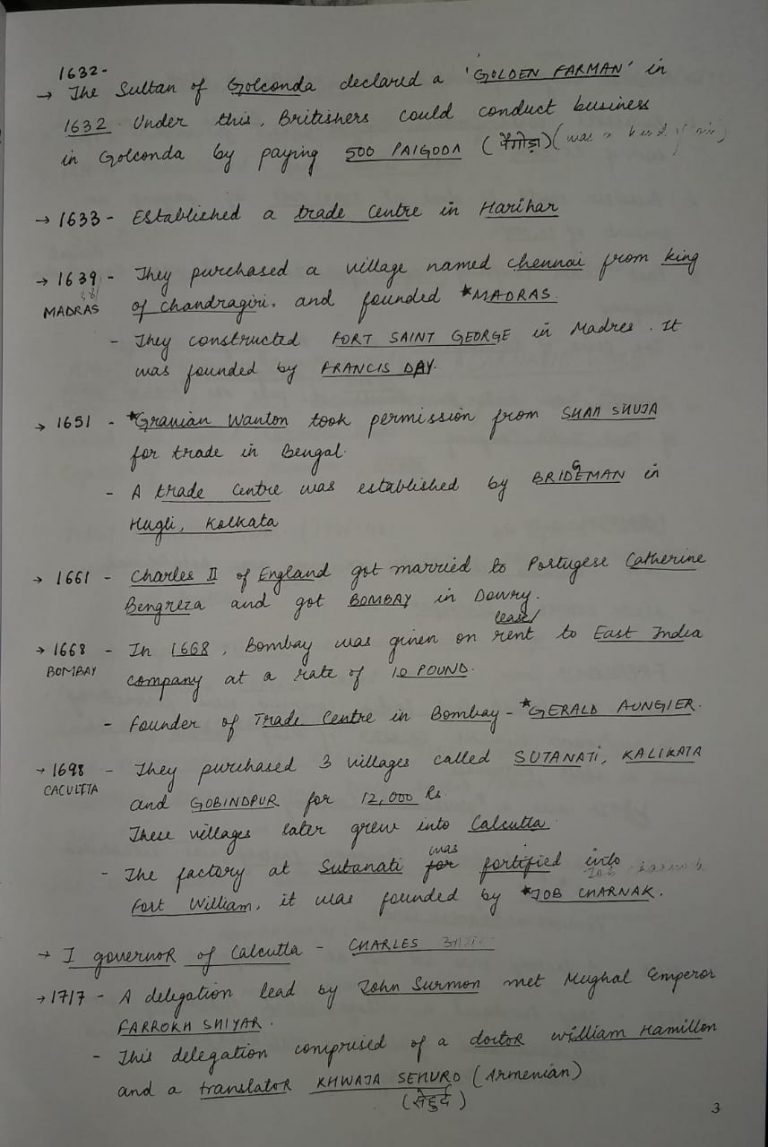 1632-
→ The Sultan of Golconda declared a 'GOLDEN FARMAN' in
1632. Under this, Britishers could conduct business
in Golconda by paying 500 PAIGODA (पैगोडा) (was a kind of
→ 1633 - Established a trade centre in Harihar
→ 1639 - They purchased a village named chennai from king
MADRAS of chandragiri. and founded *MADRAS.
- They constructed FORT SAINT GEORGE in Madres. It
was founded by FRANCIS DAY.
→ 1651 - *Gravian Wanton took permission from SHAH SHUJA
for trade in Bengal.
- A trade centre was established by BRIDGEMAN in
Hugli, Kolkata
→ 1661 - Charles II of England got married to Portugese Catherine
Bengreza and got BOMBAY in Dowry.
lease/
→ 1668 - In 1668, Bombay was given on rent to East India
BOMBAY company at a rate of 10 POUND.
- Founder of Trade Centre in Bombay - *GERALD AUNGIER.
→ 1698 - They purchased 3 villages called SUTANATI, KALIKATA
CACULTTA and GOBINDPUR for 12,000 Rs
These villages later grew into Calcutta
- The factory at Sutanati for was fortified into
Fort William, it was founded by *JOB CHARNAK.
→ I governor of Calcutta - CHARLES
→ 1717 - A delegation lead by John Surmon met Mughal Emperor
FARROKH SHIYAR.
- This delegation comprised of a doctor william Hamillon
and a translator KHWAJA SEHURD (Armenian)
(सेहुर्द)
3